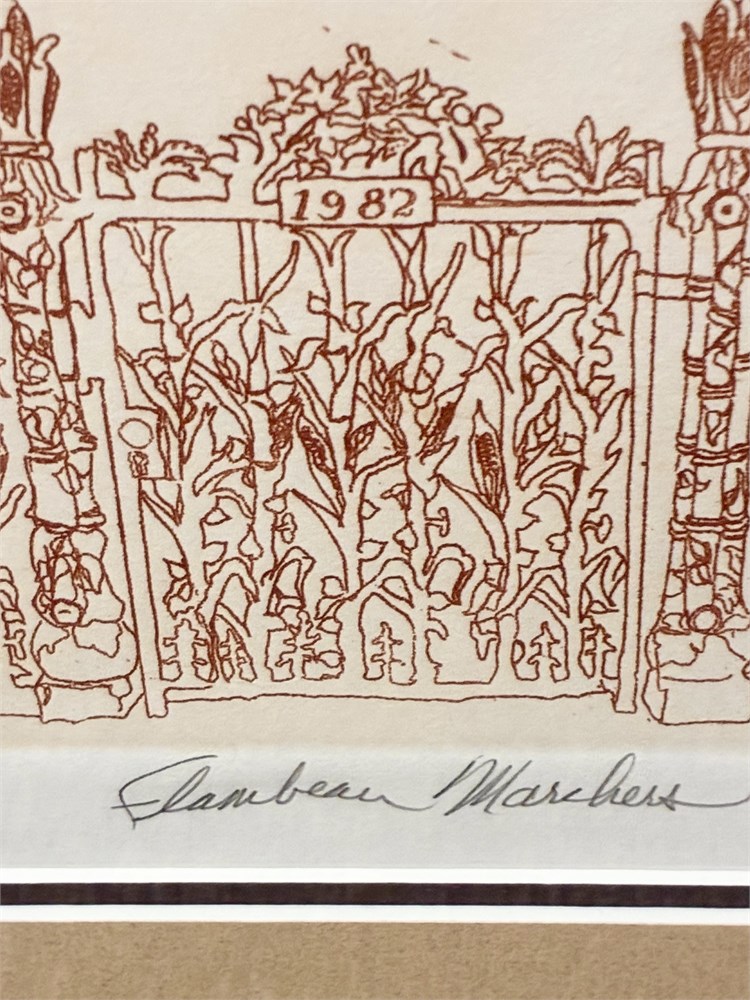 1982
Flambeau Marchers